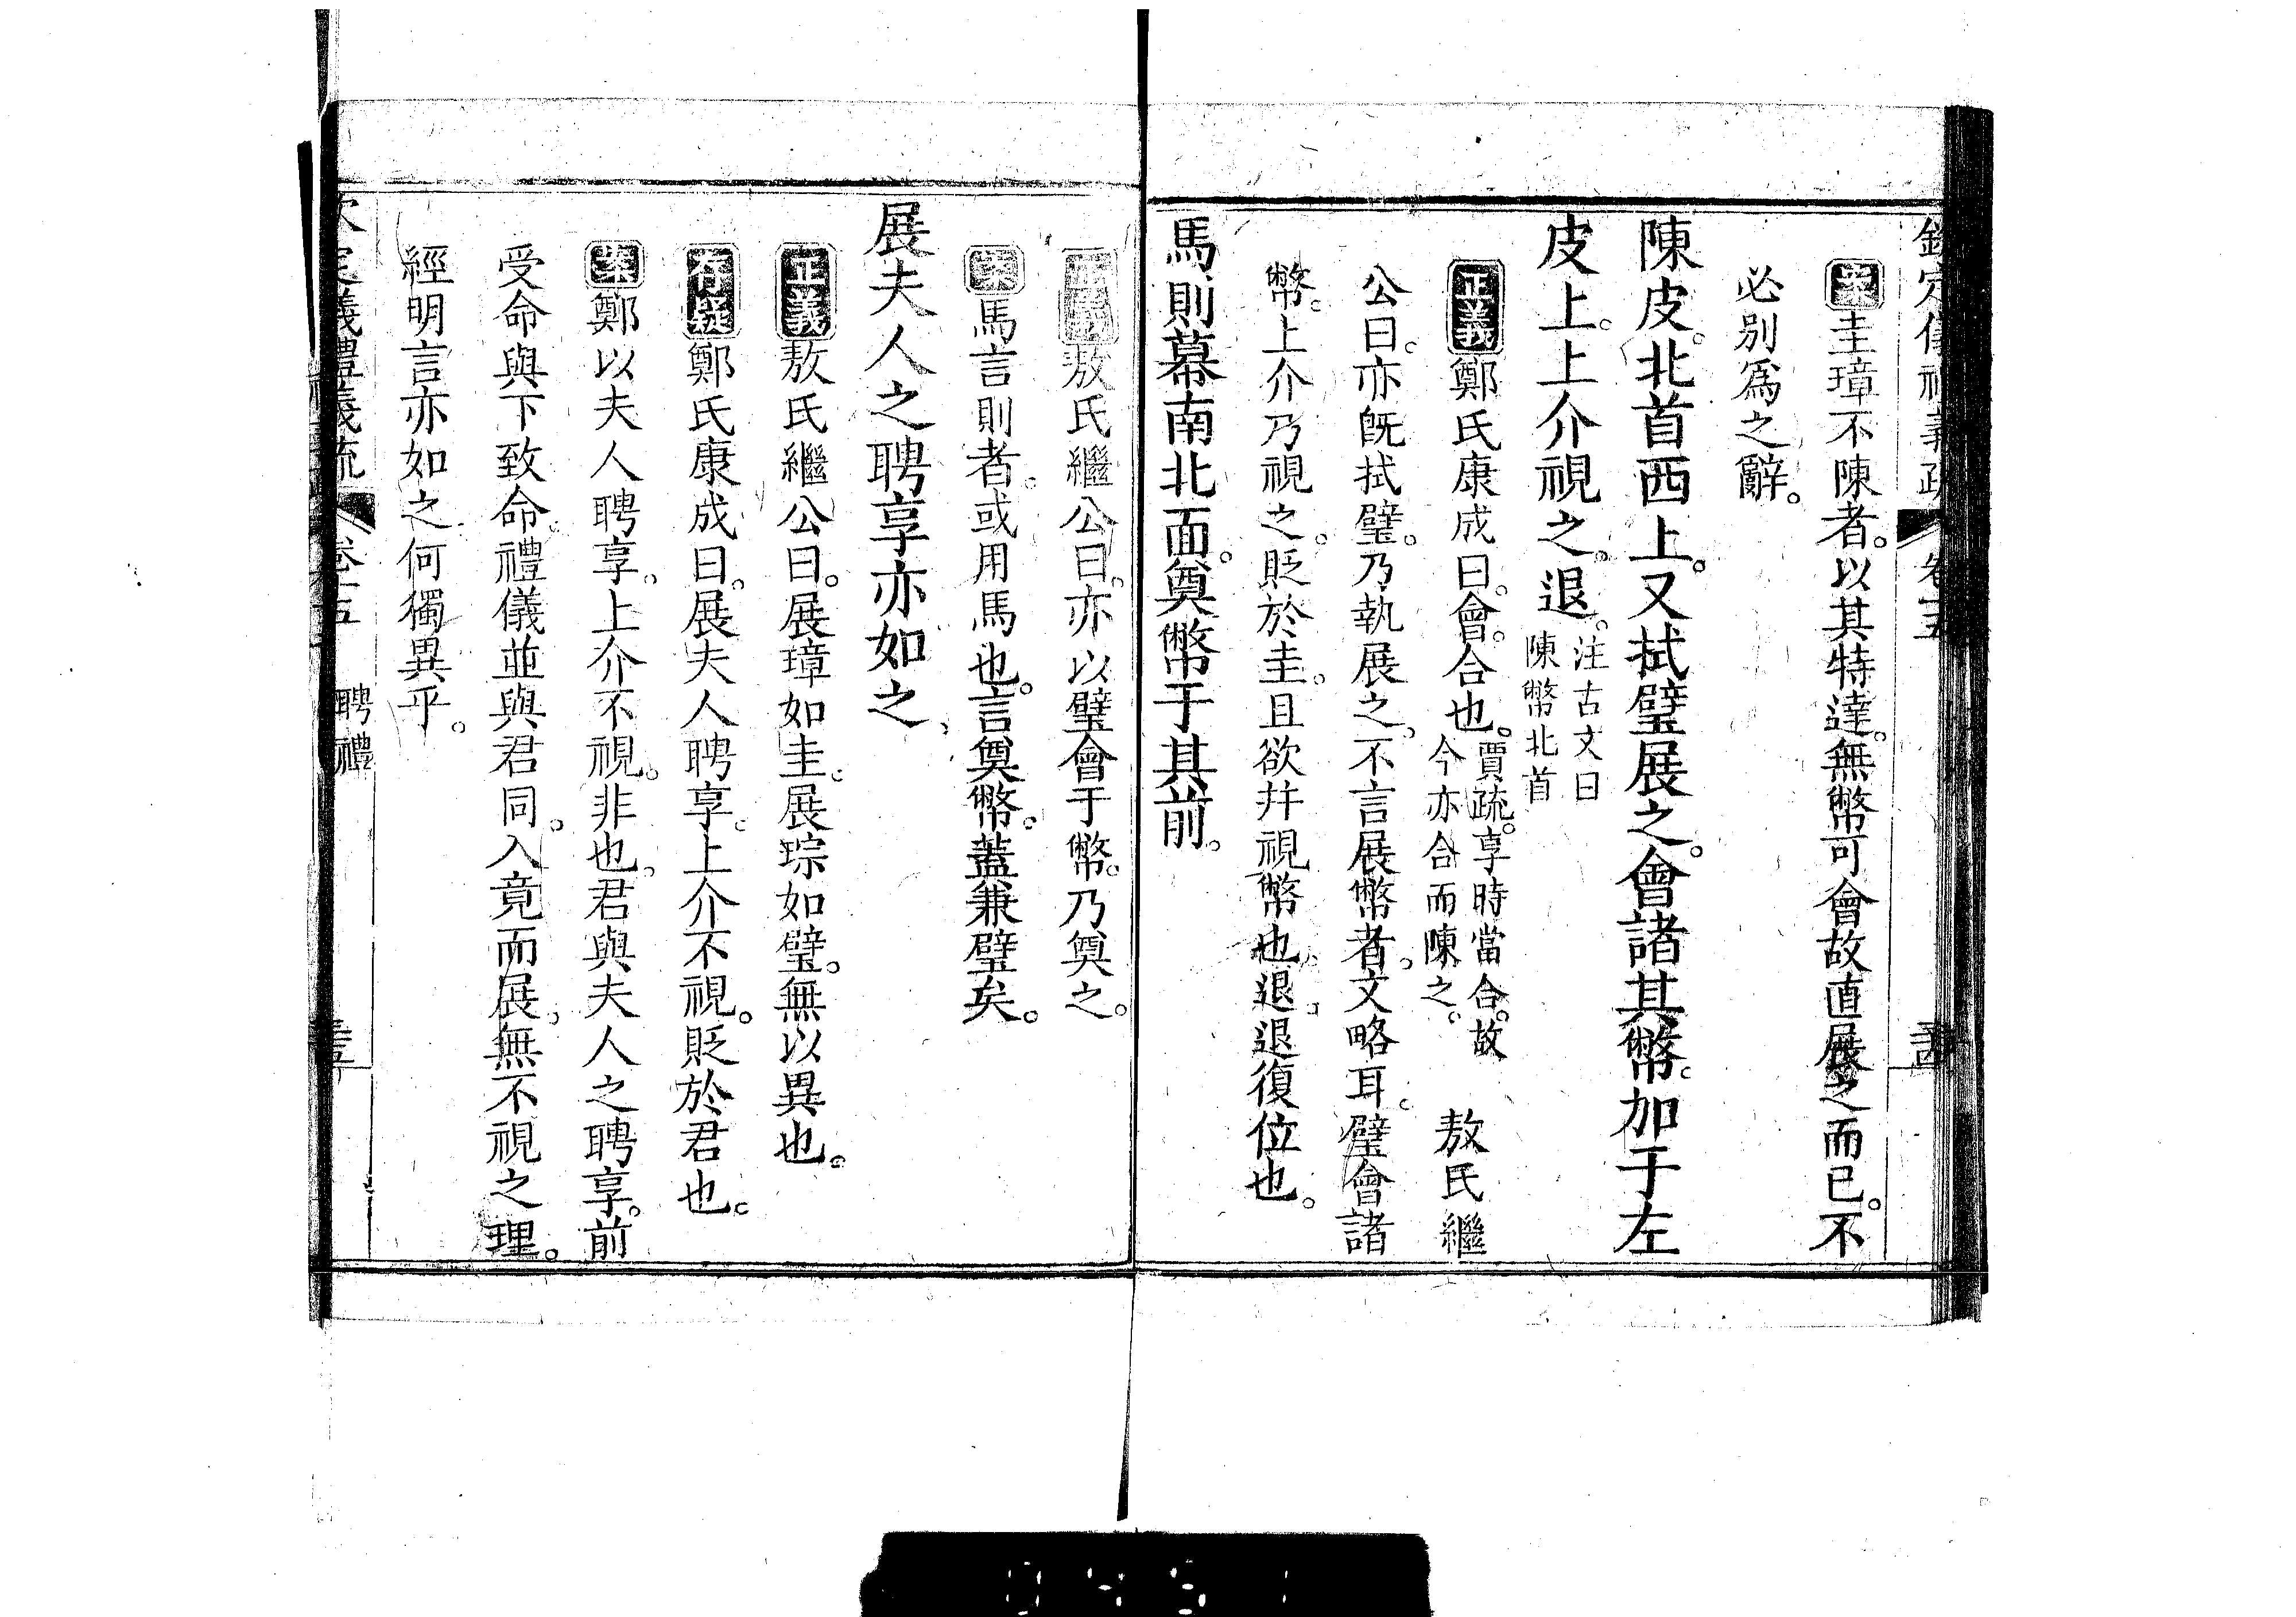 欽定儀禮義疏 卷十五
案圭璋不陳者。以其特達。無幣可會故直展之而已。不
必別爲之辭。
陳皮。北首西上。又拭璧展之。會諸其幣。加于左
皮上。上介視之。退。注古文曰陳幣北首
正義鄭氏康成曰。會。合也。賈疏。享時當合。故今亦合而陳之。 敖氏繼
公曰。亦旣拭璧。乃執展之。不言展幣者。文略耳。璧會諸
幣。上介乃視之。貶於圭。且欲幷視幣也。退。退復位也。
馬則幕南北面。奠幣于其前。
正義敖氏繼公曰。亦以璧會于幣。乃奠之。
案馬言則者。或用馬也。言奠幣。蓋兼璧矣。
展夫人之聘享亦如之。
正義敖氏繼公曰。展璋如圭。展琮如璧。無以異也。
存疑鄭氏康成曰。展夫人聘享。上介不視。貶於君也。
案鄭以夫人聘享。上介不視。非也。君與夫人之聘享。前
受命與下致命。禮儀並與君同。入竟而展。無不視之理。
經明言亦如之。何獨異乎。
欽定儀禮義疏 卷十五 聘禮